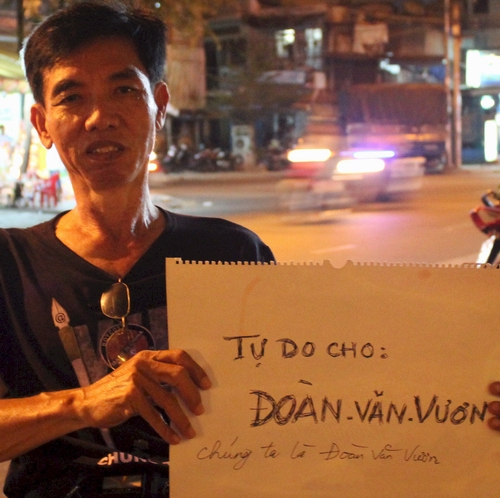 TỰ DO CHO:
ĐOÀN.VĂN.VƯƠN
chúng ta là Đoàn Văn Vươn